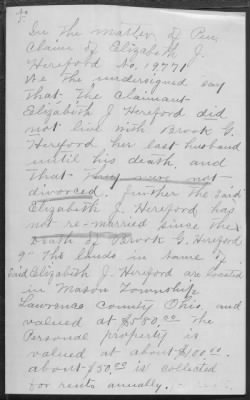 In the matter of Pen.
Claim of Elizabeth J.
Hereford No. 19771
We the undersigned say
that the Claimant
Elizabeth J Hereford did
not live with Brook G.
Hereford her last husband
until his death and
that they were not
divorced. Further the said
Elizabeth J. Hereford has
not re-married since the
Death of Brook G. Hereford
9" The lands in name of
said Elizabeth J. Hereford are located
in Mason Township
Lawrence County Ohio, and
valued at $550.00 The
Personal property is
valued at about $100.00.
about $50.00 is collected
for rents anually.